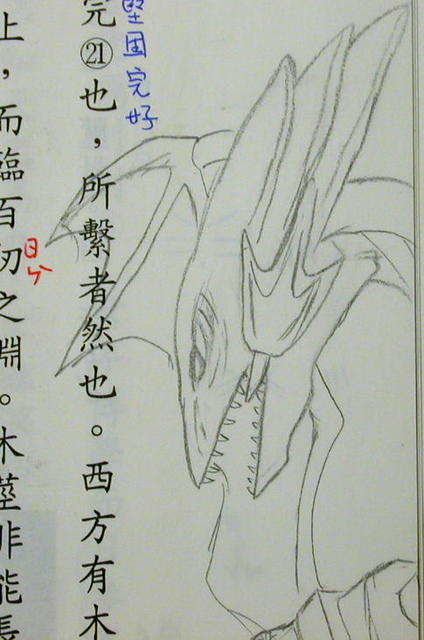 堅固完好
完㉑也,所繫者然也。西方有木
ㄖㄣˋ
上,而臨百仞之淵。木莖非能長